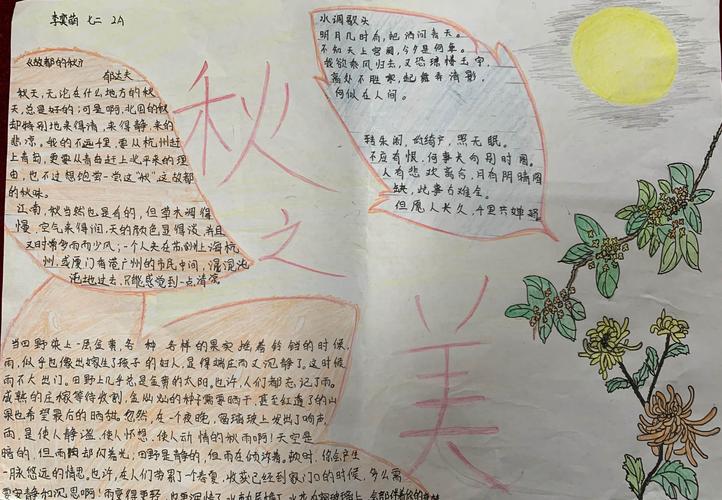 李奕萌 七二 21
《故都的秋》
郁达夫
秋天，无论在什么地方的秋
天，总是好的；可是啊，北国的秋
却特别地来得清，来得静，来的
悲凉。我的不远千里，要从杭州赶
上青岛，更要从青岛赶上北平来的理
由，也不过想饱尝一尝这“秋”，这故都
的秋味。
江南，秋当然也是有的，但草木凋得
慢，空气来得润，天的颜色显得淡，并且
又时常多雨而少风；一个人夹在苏州上海杭
州，或厦门香港广州的市民中间，混混沌
沌地过去，只能感受到一点清凉
水调歌头
明月几时有，把酒问青天。
不知天上宫阙，今夕是何年。
我欲乘风归去，又恐琼楼玉宇，
高处不胜寒，起舞弄清影，
何似在人间。
转朱阁，低绮户，照无眠。
不应有恨，何事长向别时圆。
人有悲欢离合，月有阴晴圆
缺，此事古难全。
但愿人长久，千里共婵娟
秋
之
美
当田野染上一层金黄，各种各样的果实摇着铃铛的时候，
雨，似乎也像出嫁生了孩子的妇人，显得端庄而又沉静了。这时候
雨不大出门。田野上几乎总是金黄的太阳。也许，人们都忘记了雨。
成熟的庄稼等待收割，金灿灿的种子需要晒干，甚至红透了的山
果也希望最后的晒甜。忽然，在一个夜晚，窗玻璃上发出了响声，
雨，是使人静谧，使人怀想，使人动情的秋雨啊！天空是
暗的，但雨却闪着光；田野是静的，但雨在倾诉着。顿时，你会产生
一脉悠远的情思。也许，在人们劳累了一个春夏，收获已经到家门口的时候，多么需
要安静和沉思啊！雨变得更轻，也更深情了